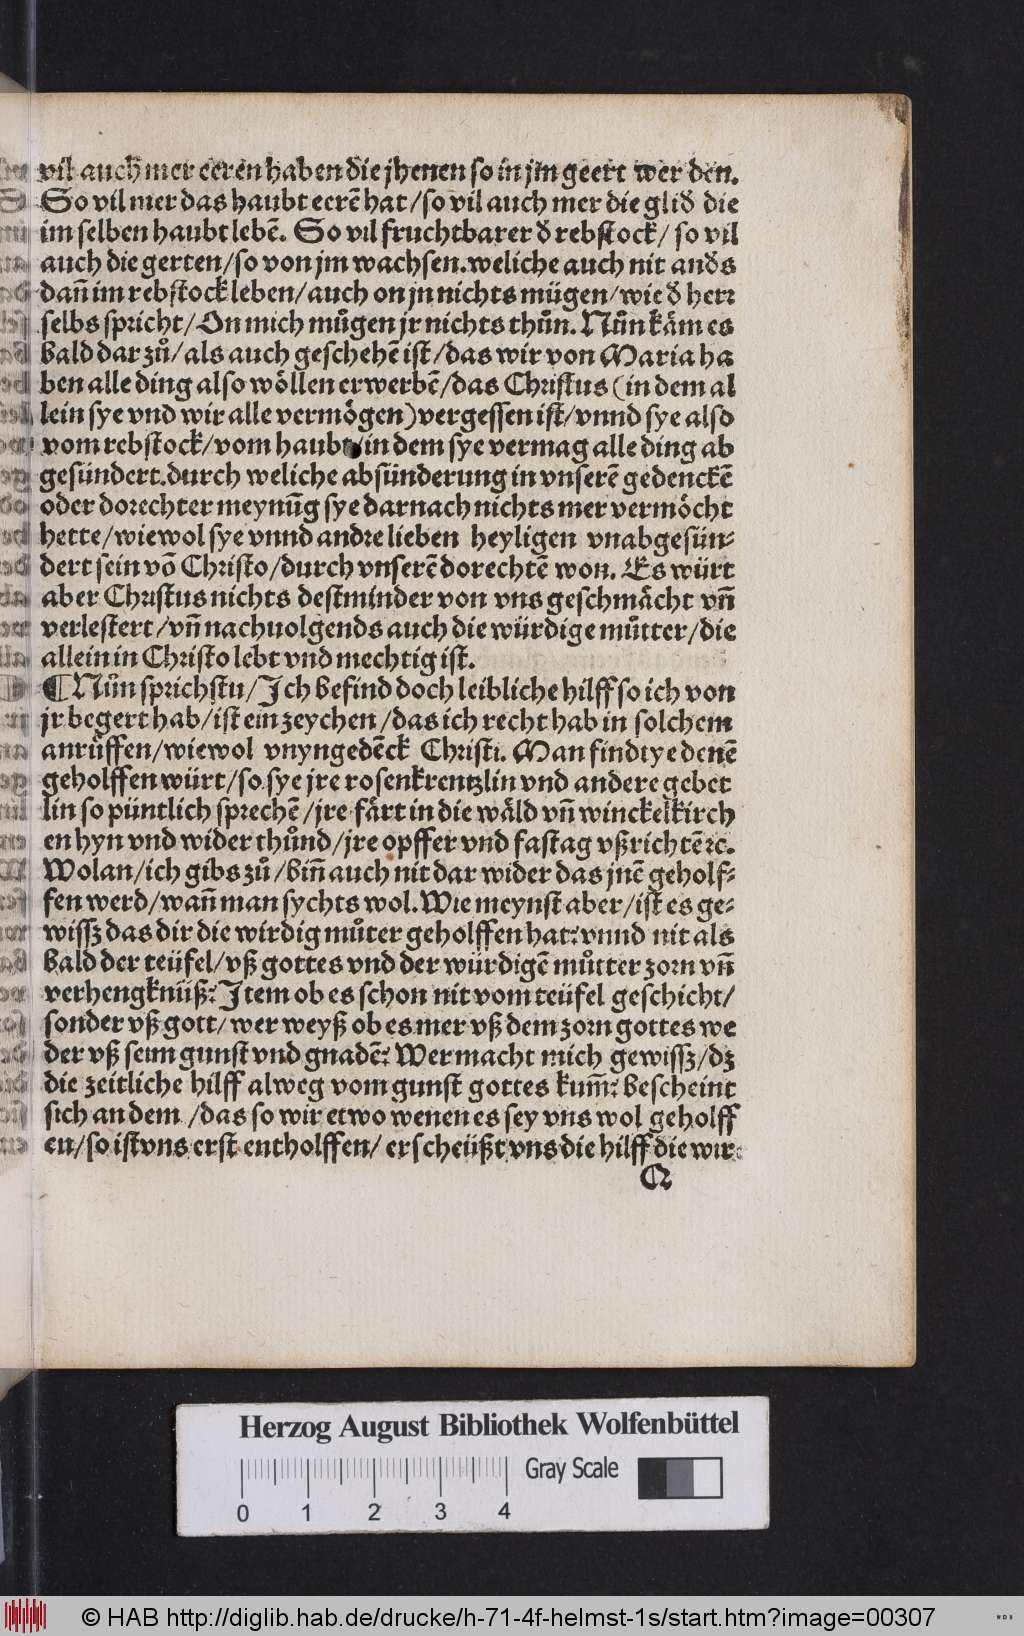 vil auch mer eeren haben die jhenen so in jm geert wer den.
So vil mer das haubt eerē hat / so vil auch mer die glið die
im selben haubt lebē. So vil fruchtbarer ð rebstock / so vil
auch die gerten / so von jm wachsen. weliche auch nit anðs
dañ im rebstock leben / auch on jn nichts mügen / wie ð herꝛ
selbs spricht / On mich můgen jr nichts thůn. Nůn käm es
bald dar zů / als auch geschehē ist / das wir von Maria ha
ben alle ding also wöllen erwerbē / das Christus (in dem al
lein sye vnd wir alle vermögen) vergessen ist / vnnd sye also
vom rebstock / vom haubt / in dem sye vermag alle ding ab
gesündert. durch weliche absünderung in vnserē gedenckē
oder dorechter meynūg sye darnach nichts mer vermöcht
hette / wiewol sye vnnd andre lieben heyligen vnabgesün⸗
dert sein vō Christo / durch vnserē dorechtē won. Es würt
aber Christus nichts destminder von vns geschmächt vñ
verlestert / vñ nachuolgends auch die würdige můtter / die
allein in Christo lebt vnd mechtig ist.
¶ Nůn sprichstu / Ich befind doch leibliche hilff so ich von
jr begert hab / ist ein zeychen / das ich recht hab in solchem
anrůffen / wiewol vnyngedēck Christi. Man findt ye denē
geholffen würt / so sye jre rosenkrentzlin vnd andere gebet
lin so püntlich sprechē / jre färt in die wäld vñ winckelkirch
en hyn vnd wider thůnd / jre opffer vnd fastag vßrichtē ꝛc.
Wolan / ich gibs zů / biñ auch nit dar wider das jnē geholf⸗
fen werd / wañ man sychts wol. Wie meynst aber / ist es ge⸗
wissz das dir die wirdig můter geholffen hat: vnnd nit als
bald der teüfel / vß gottes vnd der würdigē můtter zorn vñ
verhengknüß: Item ob es schon nit vom teüfel geschicht /
sonder vß gott / wer weyß ob es mer vß dem zorn gottes we
der vß seim gunst vnd gnadē: Wer macht mich gewissz / dz
die zeitliche hilff alweg vom gunst gottes kum̃: bescheint
sich an dem / das so wir etwo wenen es sey vns wol geholff
en / so ist vns erst entholffen / erscheüßt vns die hilff die wir
Q
Herzog August Bibliothek Wolfenbüttel
0 1 2 3 4 Gray Scale
© HAB http://diglib.hab.de/drucke/h-71-4f-helmst-1s/start.htm?image=00307
WDB